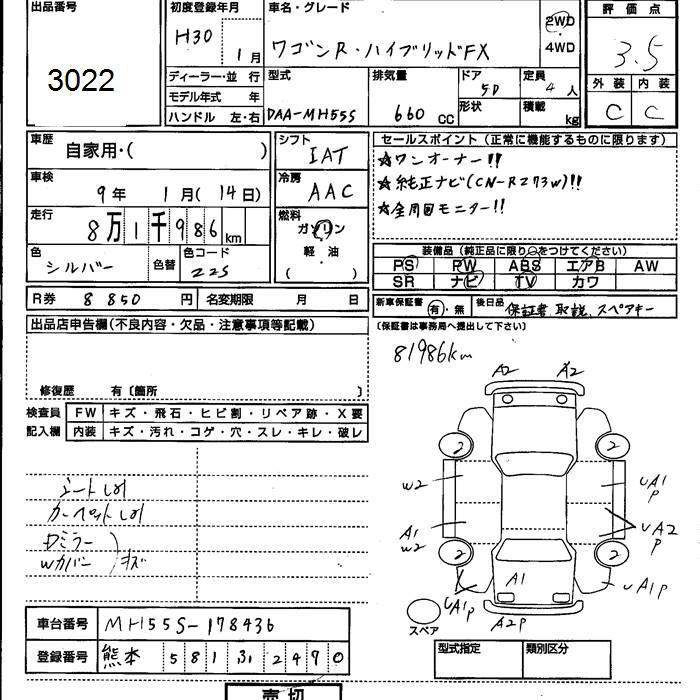 出品番号
3022
初度登録年月
H30 1月
車名・グレード
ワゴンR・ハイブリッドFX
2WD
4WD
評価点
3.5
外装 内装
C C
ディーラー・並行
モデル年式 年
ハンドル 左・右
型式
DAA-MH55S
排気量
660 CC
ドア
5D
形状
定員
4人
積載
kg
車歴
自家用・( )
車検
9年 1月(14日)
走行
8万1千986km
色
シルバー
色替
色コード
Z2S
シフト
IAT
冷房
AAC
燃料
ガソリン
軽・油
( )
セールスポイント(正常に機能するものに限ります)
☆ワンオーナー!!
☆純正ナビ(CN-RZ73W)!!
☆全周囲モニター!!
装備品(純正品に限り○をつけてください)
PS PW ABS エアB AW
SR ナビ TV カワ
R券 8850円 名変期限 月 日
新車保証書 有・無 後日品 保証書、取説、スペアキー
(保証書は事務局へ提出して下さい)
出品店申告欄(不良内容・欠品・注意事項等記載)
修復歴 有〔箇所 〕
81986km
検査員記入欄
FW キズ・飛石・ヒビ割・リペア跡・X要
内装 キズ・汚れ・コゲ・穴・スレ・キレ・破レ
シートしみ
カーペットしみ
Dミラー
Wカバー
キズ
A2 A2
2 2
W2 UA1 P
A1 W2 UA2 P
2 2
UA1P A1 UA1P
A2P
スペア
車台番号 MH55S-178436
登録番号 熊本 581 ふ 2470
型式指定 類別区分
売切